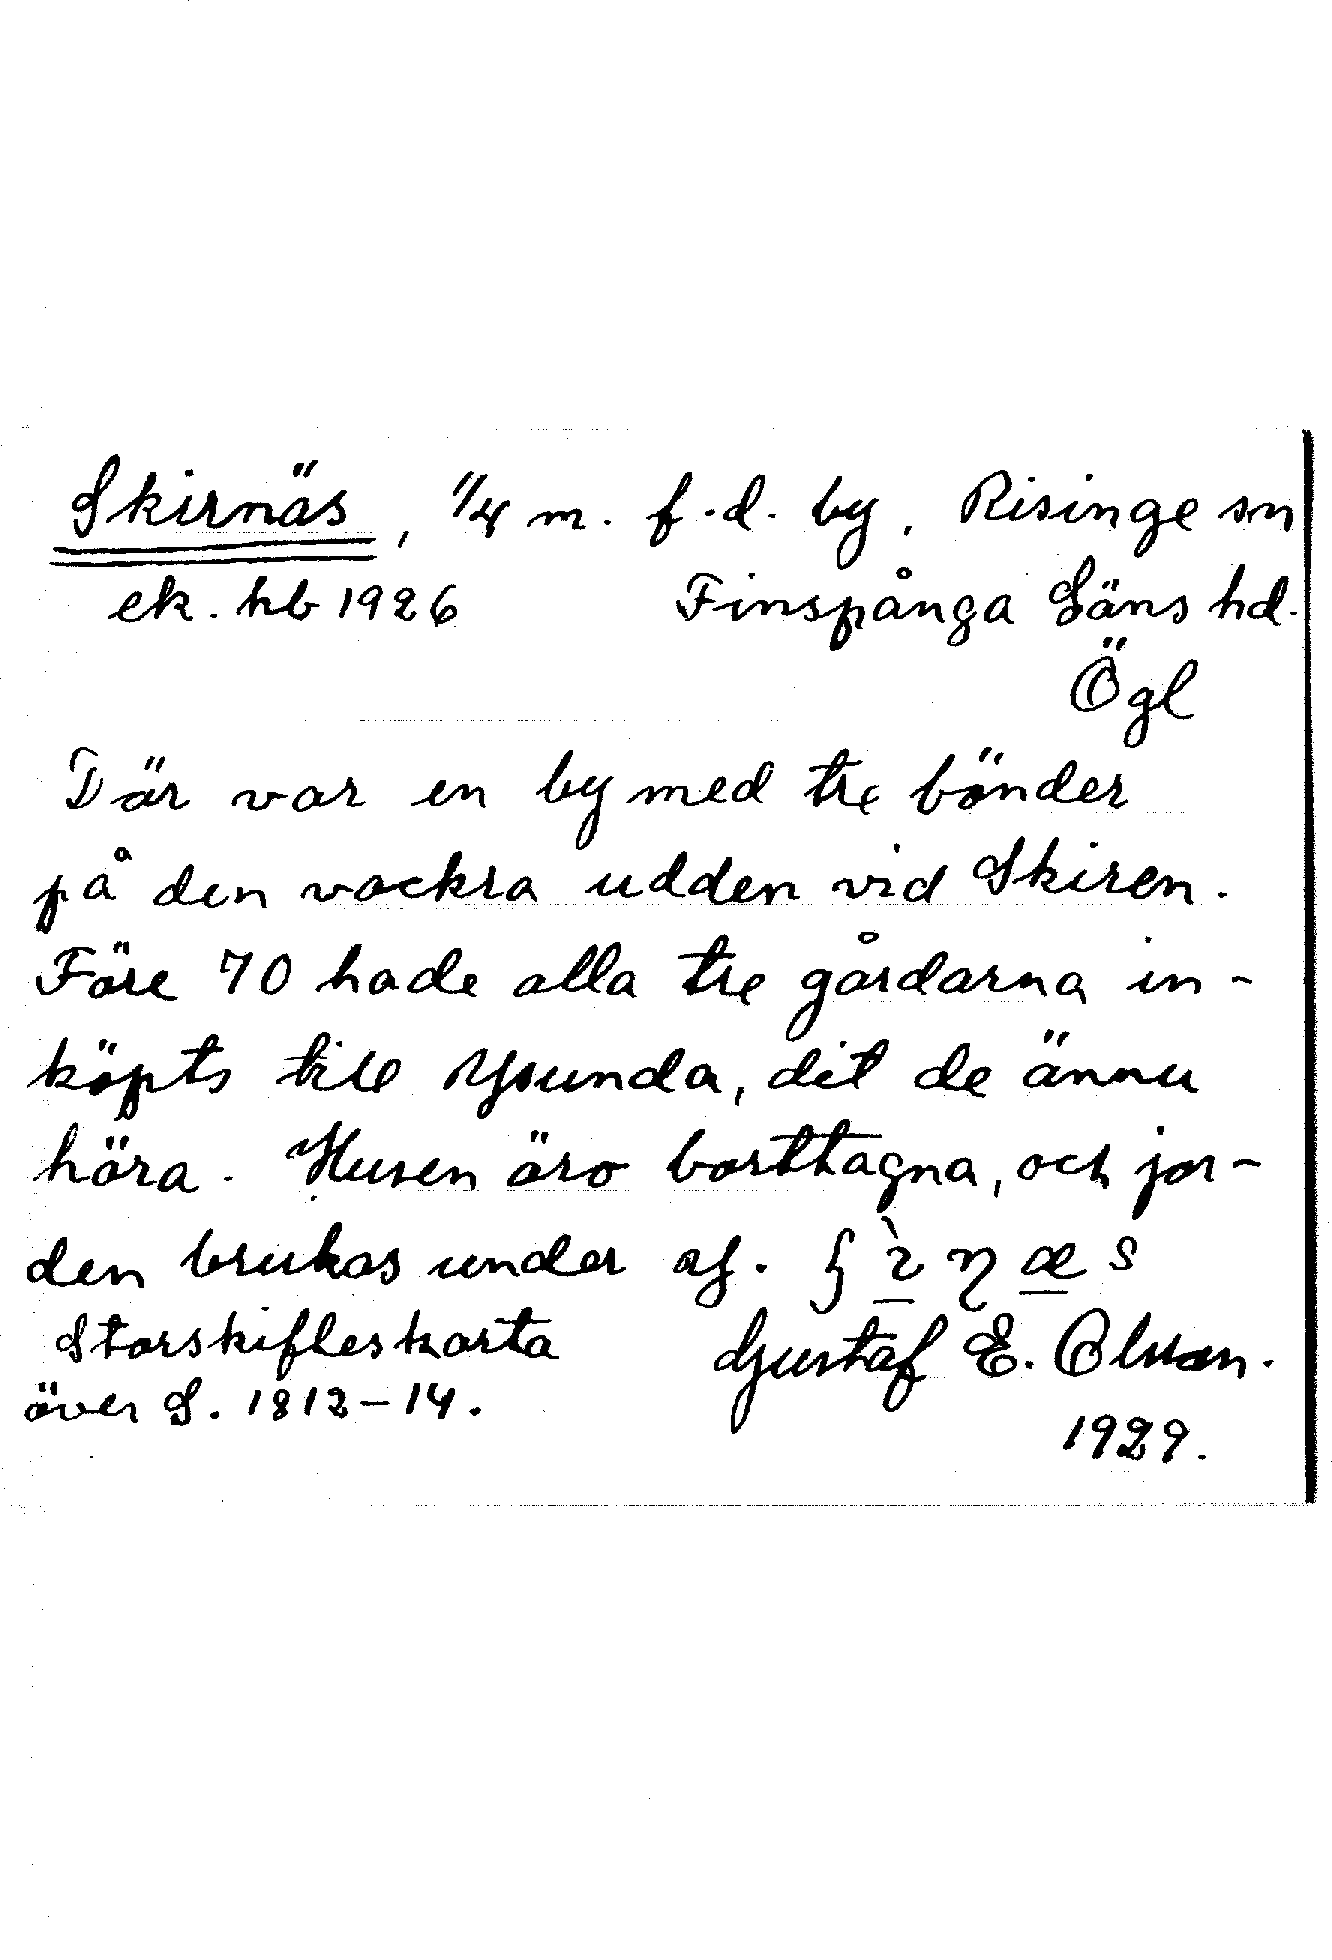 Skirnäs, 1/4 m. f.d. by. Risinge sn
ek. hb 1926 Finspånga Läns hd.
Ögl
Där var en by med tre bönder
på den vackra udden vid Skiren.
Före 70 hade alla tre gårdarna in-
köpts till Ysunda, dit de ännu
höra. Husen äro borttagna, och jor-
den brukas under
Storskifleskarta Gustaf E. Olsson.
över S. 1812-14.
1929.